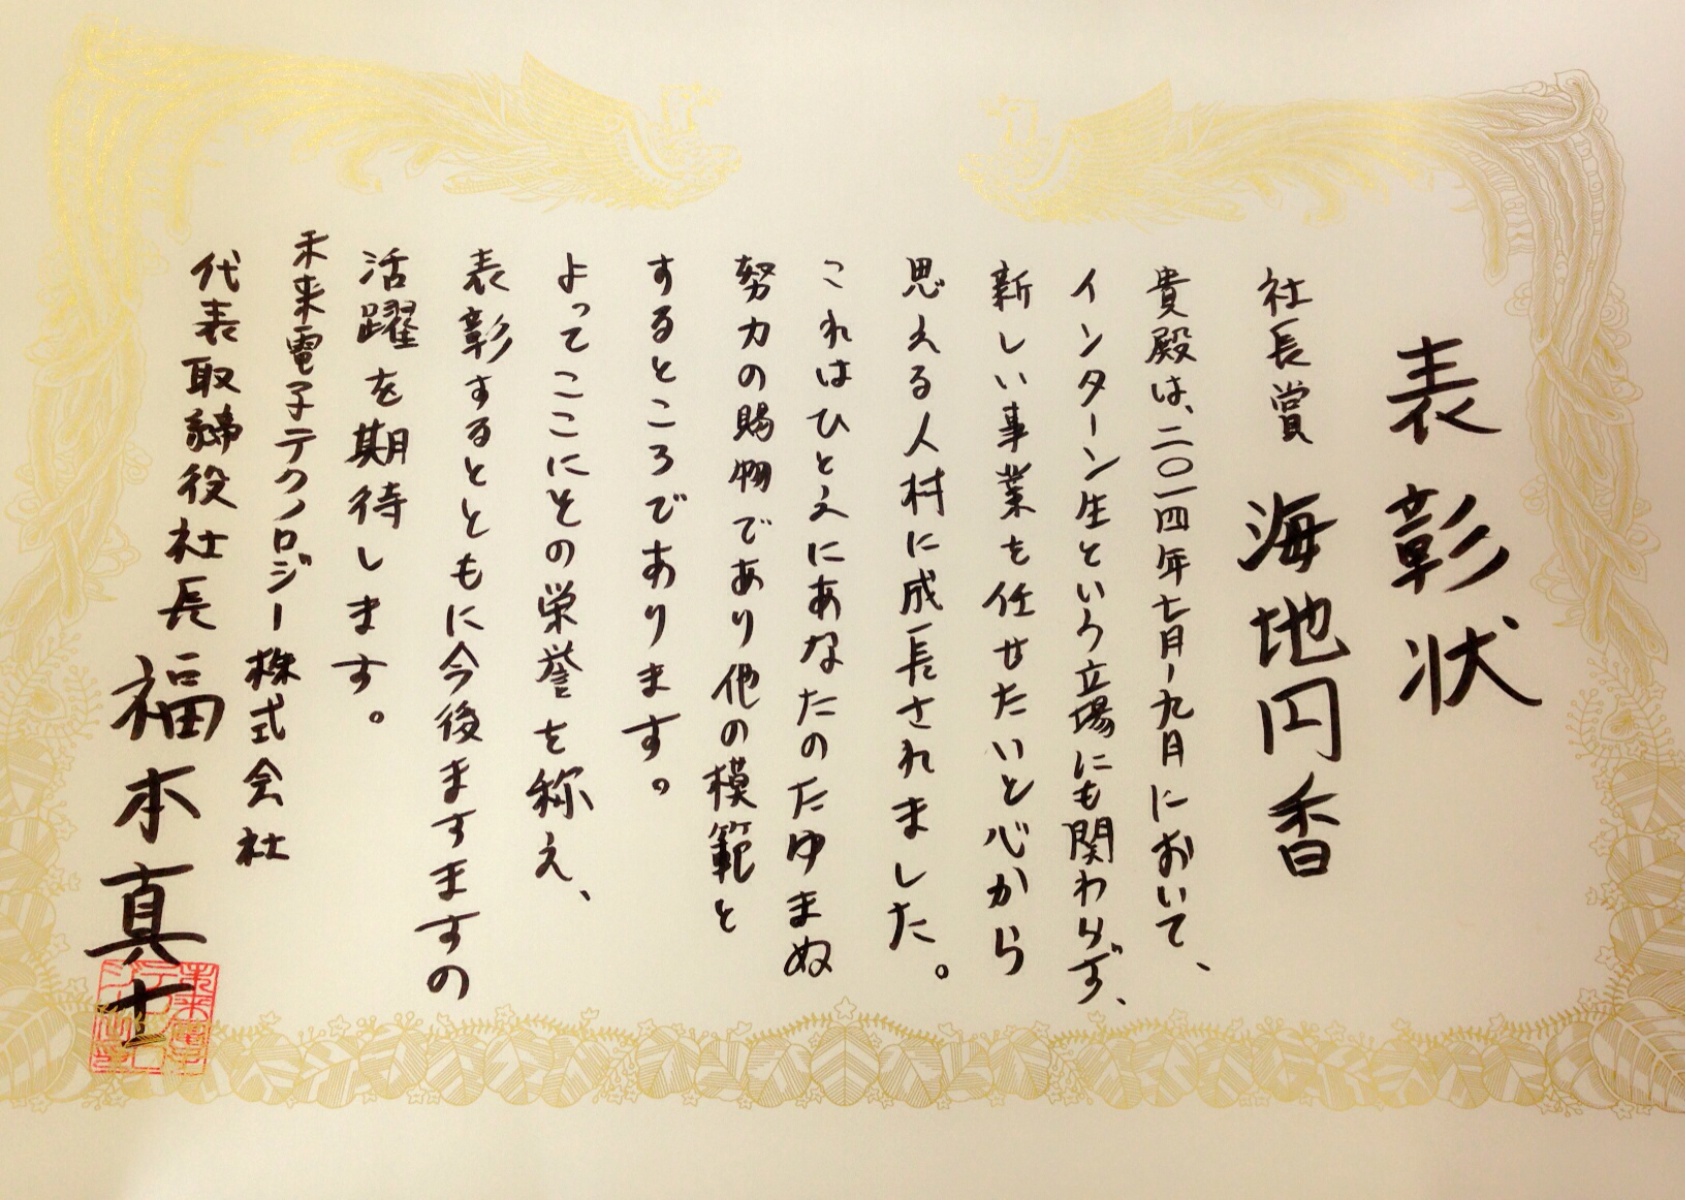 表彰状
社長賞 海地円香
貴殿は、二〇一四年七月-九月において、
インターン生という立場にも関わらず、
新しい事業を任せたいと心から
思える人材に成長されました。
これはひとえにあなたのたゆまぬ
努力の賜物であり他の模範と
するところであります。
よってここにその栄誉を称え、
表彰するとともに今後ますますの
活躍を期待します。
未来電子テクノロジー株式会社
代表取締役社長 福本真士